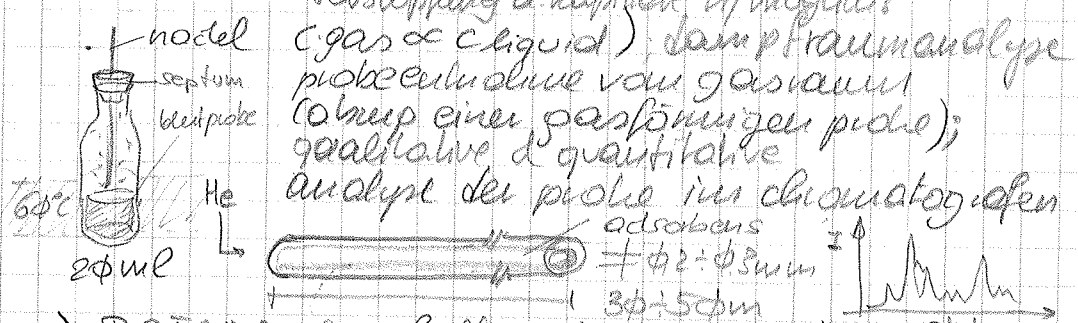 nadel
septum
blutprobe
(c gas ∝ c liquid) dampfraumanalyse
probeentnahme vom gasraum
einer gasförmigen probe);
qualitative & quantitative
analyse der probe im chromatografen
6ϕ°C
He
2ϕ ml
adsorbens
ϕ,2 ÷ ϕ,3 mm
3ϕ ÷ 5ϕ m
I